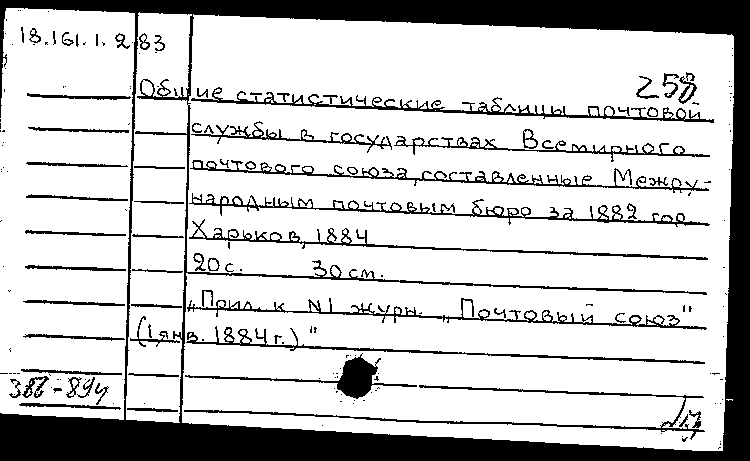 18.161.1.283
258
Общие статистические таблицы почтовой
службы в государствах Всемирного
почтового союза, составленные Между-
народным почтовым бюро за 1882 год.
Харьков, 1884
20 с. 30 см.
„Прил. к N1 журн. „Почтовый союз"
(1 янв. 1884 г.)"